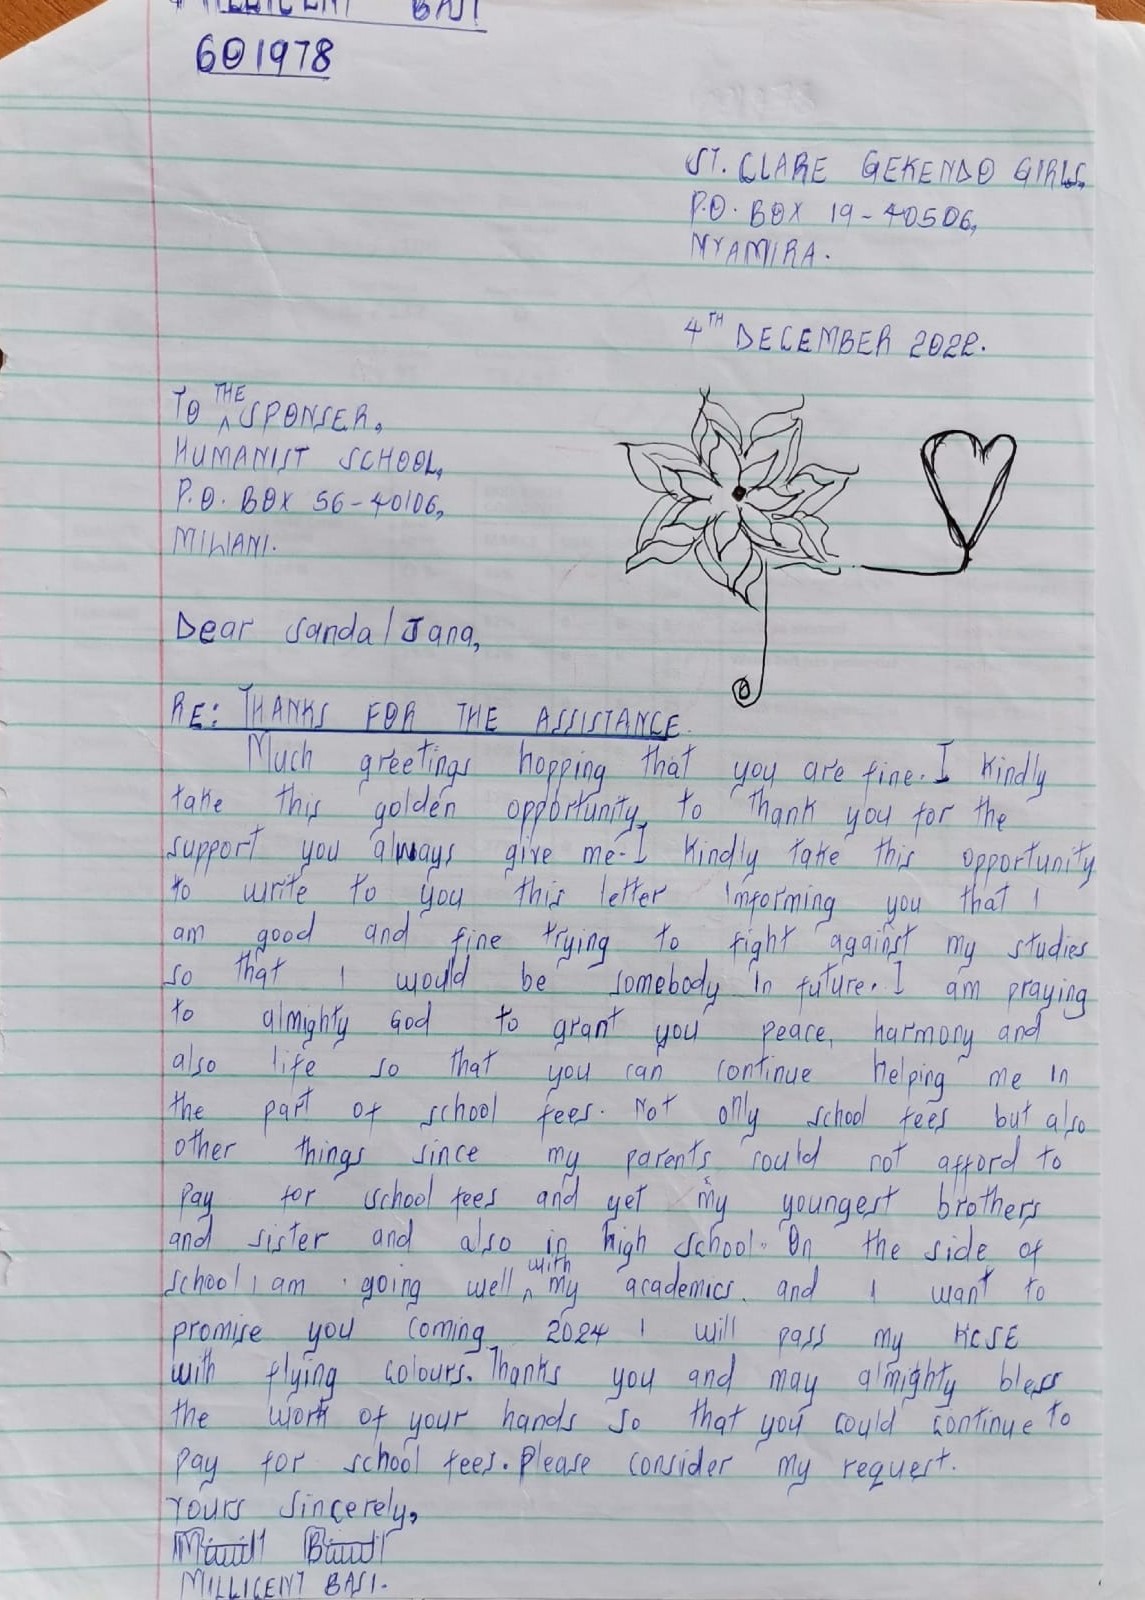 MILLICENT BASI
601978
ST. CLARE GEKENDO GIRLS,
P.O. BOX 19-40506,
NYAMIRA.
4TH DECEMBER 2022.
TO THE SPONSER,
HUMANIST SCHOOL,
P.O. BOX 56-40106,
MILIANI.
Dear Sanda/Jana,
RE: THANKS FOR THE ASSISTANCE.
Much greetings hopping that you are fine. I kindly
take this golden opportunity to thank you for the
support you always give me. I kindly take this opportunity
to write to you this letter informing you that I
am good and fine trying to fight against my studies
so that I would be somebody in future. I am praying
to almighty God to grant you peace, harmony and
also life so that you can continue helping me in
the part of school fees. Not only school fees but also
other things since my parents could not afford to
pay for school fees and yet my youngest brothers
and sister and also in high school. On the side of
school i am going well with my academics and I want to
promise you coming 2024 I will pass my KCSE
with flying colours. Thanks you and may almighty bless
the work of your hands so that you could continue to
pay for school fees. Please consider my request.
Yours Sincerely,
MILLICENT BASI.